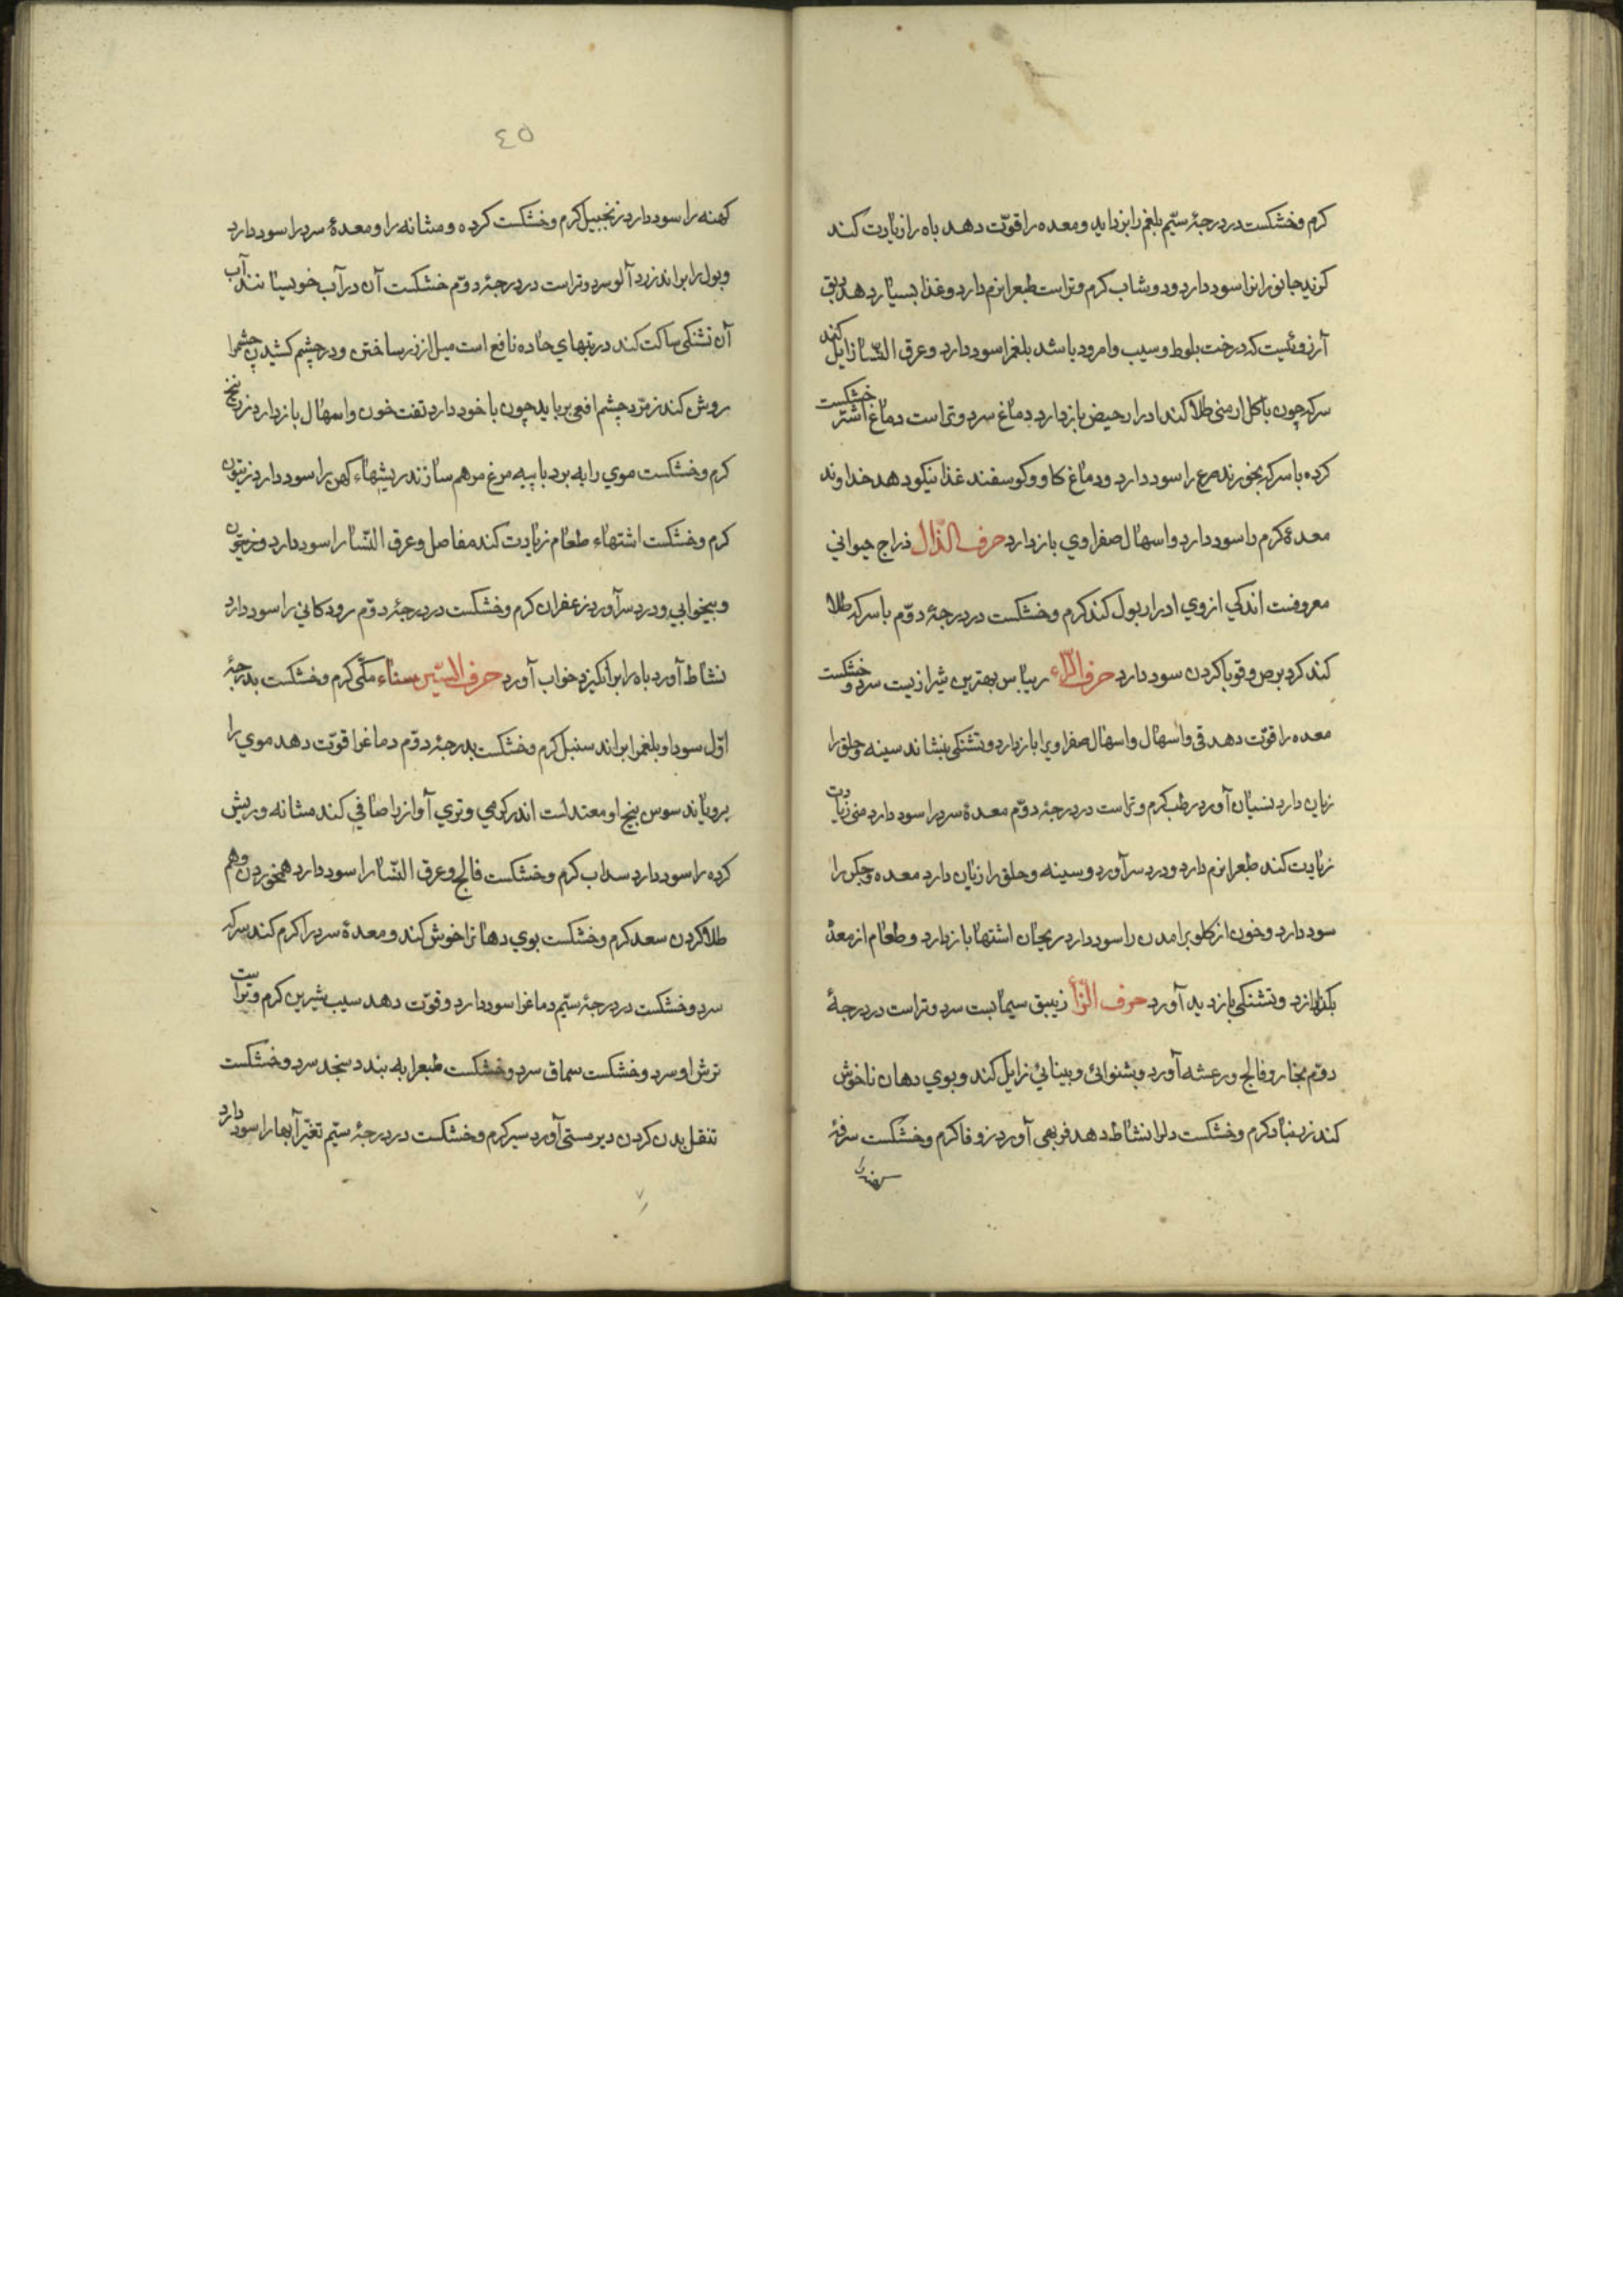 گرم و خشکست در درجهٔ سیّم بلغم را بزداید و معده را قوّت دهد باه را زیادت کند
گزند جانورانرا سود دارد دوشاب گرم و تراست طبعرا نرم دارد و غذا بسیار دهد دبق
آرزوئیست که درخت بلوط و سیب و امرود باشد بلغمرا سود دارد و عرق النّسا زایل کند
سرکه چون با کل ارمنی طلا کند ادرار حیض بازدارد دماغ سرد و تراست دماغ اشتر خشکست
کرده با سرکه بخورند صرع را سود دارد و دماغ کاو و کوسفند غذا نیکو دهد خداوند
معدهٔ گرم را سود دارد و اسهال صفراوی بازدارد حرف الذّال ذراج حیوانی
معروفست اندکی از وی ادرار بول کند گرم و خشکست در درجهٔ دوّم با سرکه طلا
کند کرد برص و قوبا کردن سود دارد حرف الرّاء ریباس بهترین شیرازیست سرد و خشکست
معده را قوّت دهد قی و اسهال و اسهال صفراویرا بازدارد و تشنکی بنشاند سینه و حلق را
زیان دارد نسیان آورد رطب گرم و تراست در درجهٔ دوّم معدهٔ سردرا سود دارد منی زیادت
زیادت کند طبعرا نرم دارد و درد سر آورد و سینه و حلق را زیان دارد معده و جکر را
سود دارد و خون از کلو برامدن را سود دارد ریحان اشتها بازدارد و طعام از معدهٔ
بکذاراند و تشنکی بازدید آورد حرف الزّا زیبق سیمابست سرد و تراست در درجهٔ
دوّم بخار و فالج و رعشه آورد و شنوائی و بینائی زایل کند و بوی دهان ناخوش
کند زرنباد گرم و خشکست دلرا نشاط دهد فربهی آورد زوفا گرم و خشکست سرفهٔ
کهنه را
٤٥
کهنه را سود دارد زنجبیل گرم و خشکست کرده و مثانه را و معدهٔ سردرا سود دارد
و بول را براند زردآلو سرد و تراست در درجهٔ دوّم خشکست آن در آب خویسانند آب
آن تشنکی ساکت کند در تبهای حاده نافع است میل از زر ساختن و در چشم کشیدن چشمرا
روشن کند زمرّد چشم افعی برباید چون با خود دارد تفت خون و اسهال بازدارد زرنیخ
گرم و خشکست موی را به برد با پیه مرغ مرهم سازند ریشهاء کهن را سود دارد زیتون
گرم و خشکست اشتهاء طعام زیادت کند مفاصل و عرق النّسا را سود دارد
و بیخوابی و درد سر آورد زعفران گرم و خشکست در درجهٔ دوّم رودکانی را سود دارد
نشاط آورد باه را برانکیزد خواب آورد حرف السّین سناء مکّی گرم و خشکست بدرجهٔ
اوّل سودا و بلغمرا براند سنبل گرم و خشکست بدرجهٔ دوّم دماغرا قوّت دهد موی را
برویاند سوس بیخ او معتدلست اندر کرمی و تری آواز را صافی کند مثانه و ریش
کرده را سود دارد سداب گرم و خشکست فالج و عرق النّسا را سود دارد هم خوردن و هم
طلا کردن سعد گرم و خشکست بوی دهانرا خوش کند و معدهٔ سردرا گرم کند سرکه
سرد و خشکست در درجهٔ سیّم دماغرا سود دارد و قوّت دهد سیب شیرین گرم و تراست
ترش او سرد و خشکست سماق سرد و خشکست طبعرا به بندد سنجد سرد و خشکست
تنقل بدن کردن دیر مستی آورد سیر گرم و خشکست در درجهٔ سیّم تغیّر آبها را سود دارد